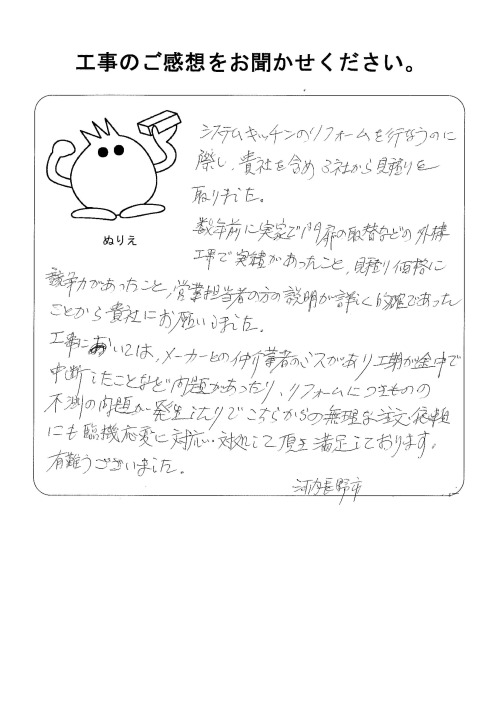 工事のご感想をお聞かせください。
システムキッチンのリフォームを行なうのに
際し、貴社を含め3社から見積りを
取りました。
ぬりえ
数年前に実家で門扉の取替などの外構
工事で実績があったこと、見積り価格に
競争力があったこと、営業担当者の方の説明が詳しく的確であった
ことから貴社にお願いしました。
工事においては、メーカーとの仲介業者のミスがあり工期が途中で
中断したことなど問題があったり、リフォームにつきものの
不測の問題が発生したりでこちらからの無理な注文・依頼
にも臨機応変に対応・対処して頂き満足しております。
有難うございました。
河内長野市